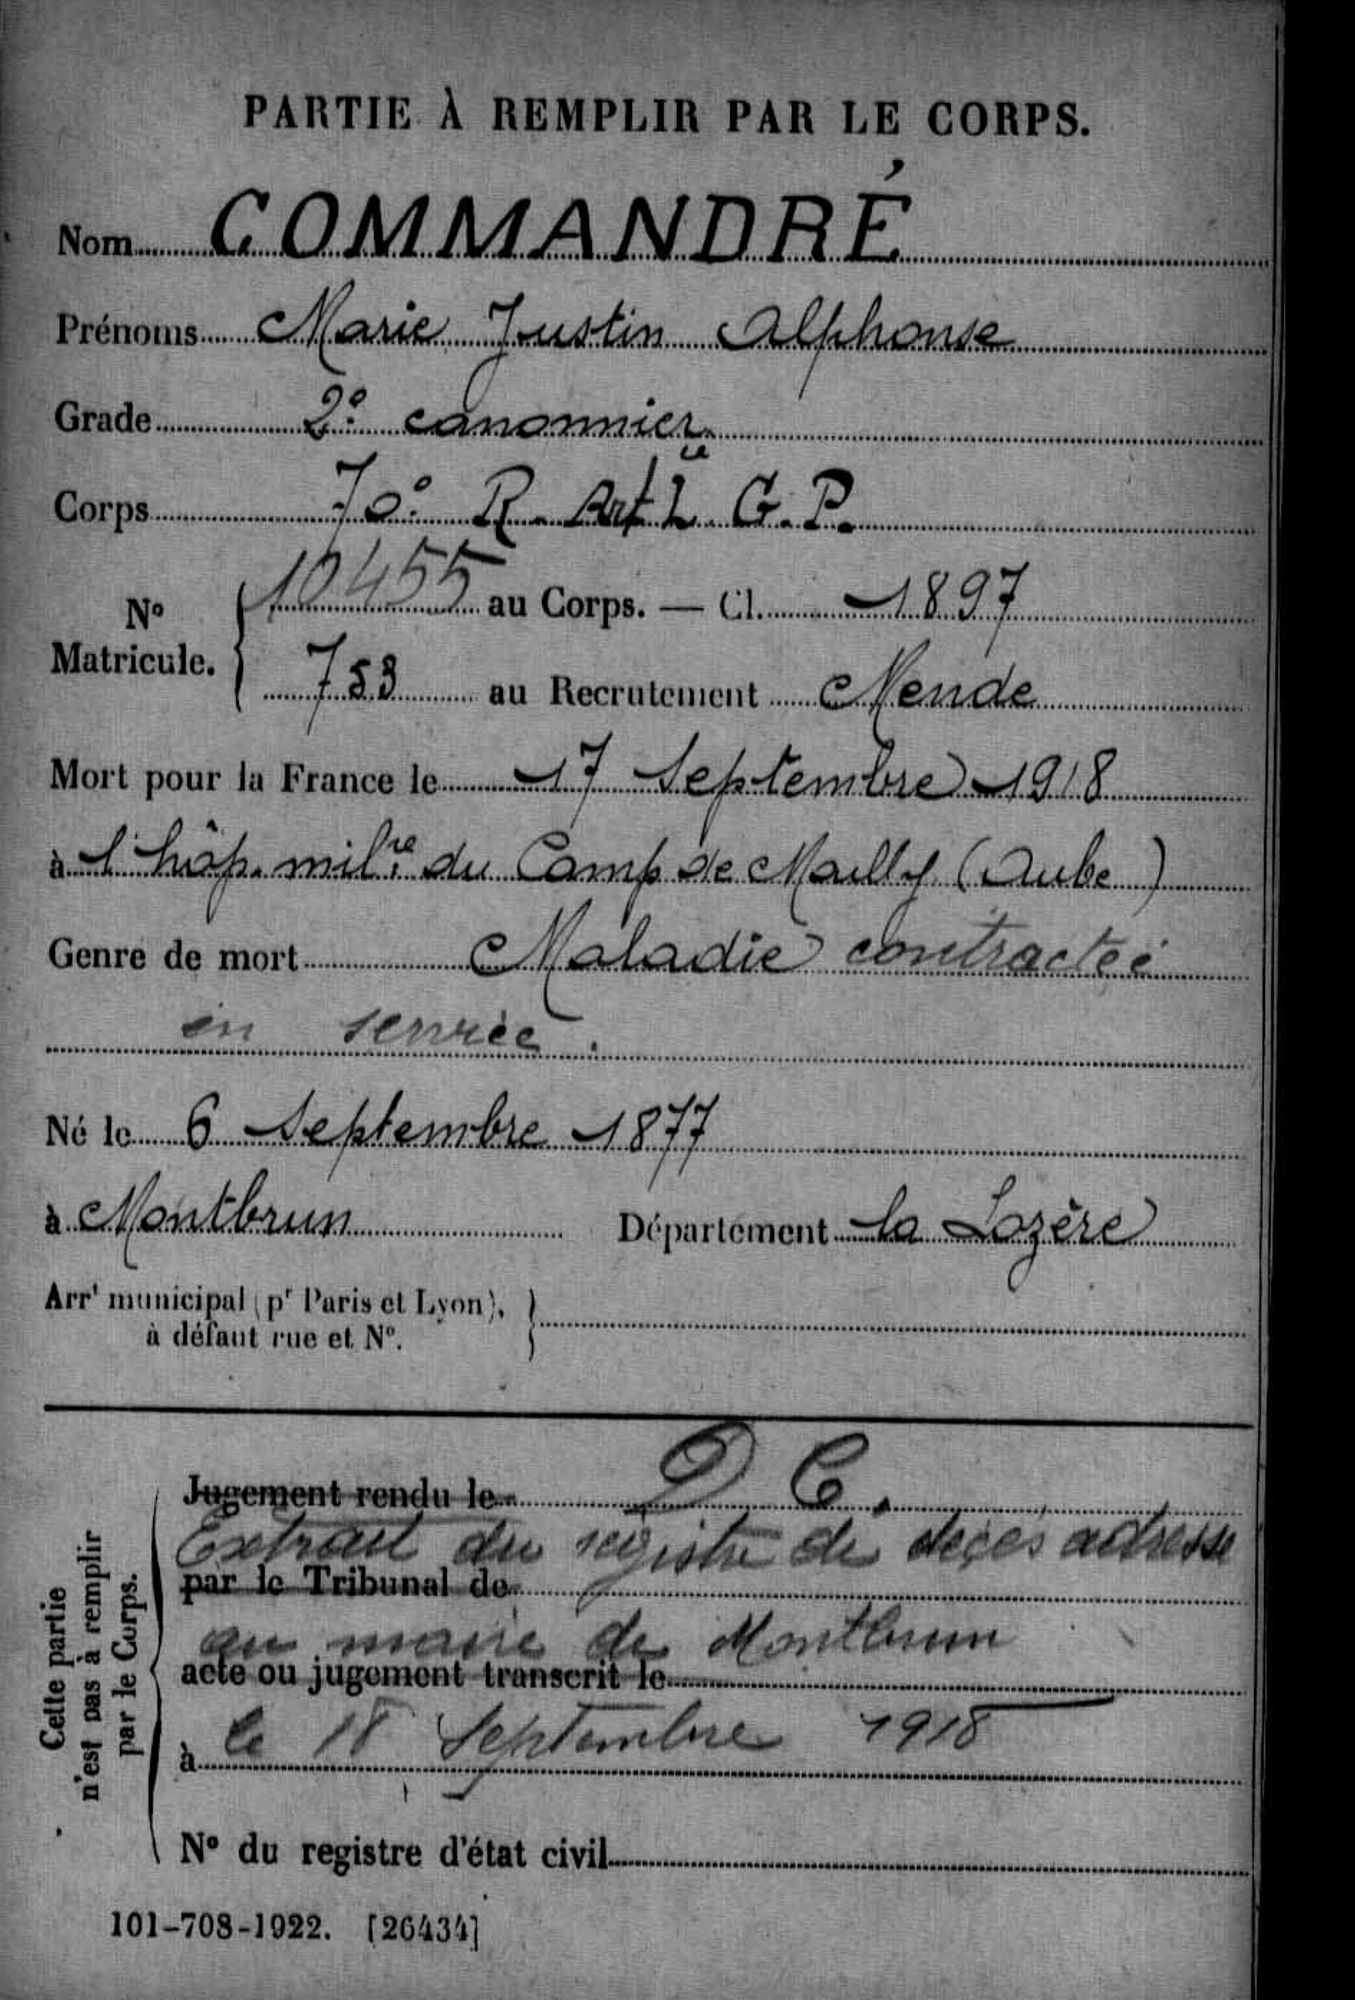 PARTIE À REMPLIR PAR LE CORPS.
Nom COMMANDRÉ
Prénoms Marie Justin Alphonse
Grade 2e canonnier
Corps 70e R. Art Lde G. P.
No Matricule. 10455 au Corps. — Cl. 1897
753 au Recrutement Mende
Mort pour la France le 17 Septembre 1918
à l'hôp. milre du Camp de Mailly (Aube)
Genre de mort Maladie contractée
en service.
Né le 6 Septembre 1877
à Montbrun Département la Lozère
Arrt municipal (pr Paris et Lyon),
à défaut rue et No.
Cette partie
n'est pas à remplir
par le Corps.
Jugement rendu le D C.
Extrait du registre de décès adressé
par le Tribunal de
au maire de Montbrun
acte ou jugement transcrit le
à le 18 Septembre 1918
No du registre d'état civil
101-708-1922. [26434]